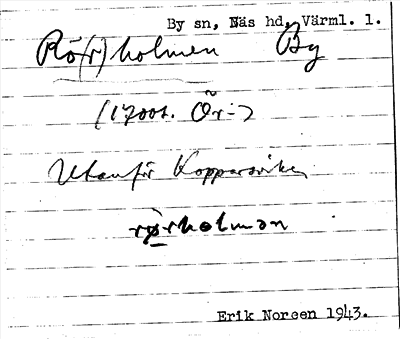 By sn, Näs hd, Värml. l.
Rö(r)holmen By
(1700t. Ör-)
Utanför Kopparsviken
rørholman
Erik Noreen 1943.